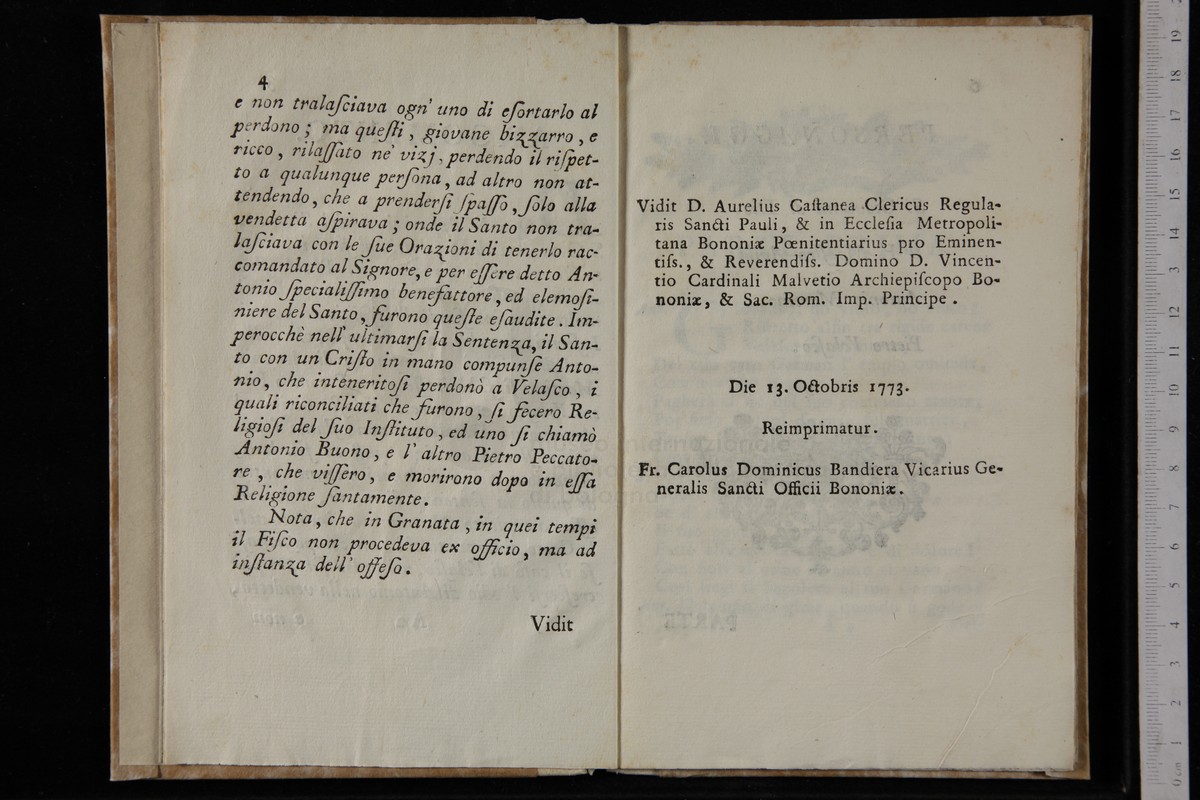 4
e non tralaſciava ogn' uno di eſortarlo al
perdono ; ma queſti , giovane bizzarro , e
ricco , rilaſſato ne' vizj , perdendo il riſpet-
to a qualunque perſona , ad altro non at-
tendendo , che a prenderſi ſpaſſo , ſolo alla
vendetta aſpirava ; onde il Santo non tra-
laſciava con le ſue Orazioni di tenerlo rac-
comandato al Signore , e per eſſere detto An-
tonio ſpecialiſſimo benefattore , ed elemoſi-
niere del Santo , furono queſte eſaudite . Im-
perocchè nell' ultimarſi la Sentenza , il San-
to con un Criſto in mano compunſe Anto-
nio , che inteneritoſi perdonò a Velaſco , i
quali riconciliati che furono , ſi fecero Re-
ligioſi del ſuo Inſtituto , ed uno ſi chiamò
Antonio Buono , e l' altro Pietro Peccato-
re , che viſſero , e morirono dopo in eſſa
Religione ſantamente .
Nota , che in Granata , in quei tempi
il Fiſco non procedeva ex officio , ma ad
inſtanza dell' offeſo .
Vidit
Vidit D. Aurelius Caſtanea Clericus Regula-
ris Sancti Pauli , & in Eccleſia Metropoli-
tana Bononiæ Pœnitentiarius pro Eminen-
tiſs. , & Reverendiſs. Domino D. Vincen-
tio Cardinali Malvetio Archiepiſcopo Bo-
noniæ , & Sac. Rom. Imp. Principe .
Die 13. Octobris 1773.
Reimprimatur .
Fr. Carolus Dominicus Bandiera Vicarius Ge-
neralis Sancti Officii Bononiæ .